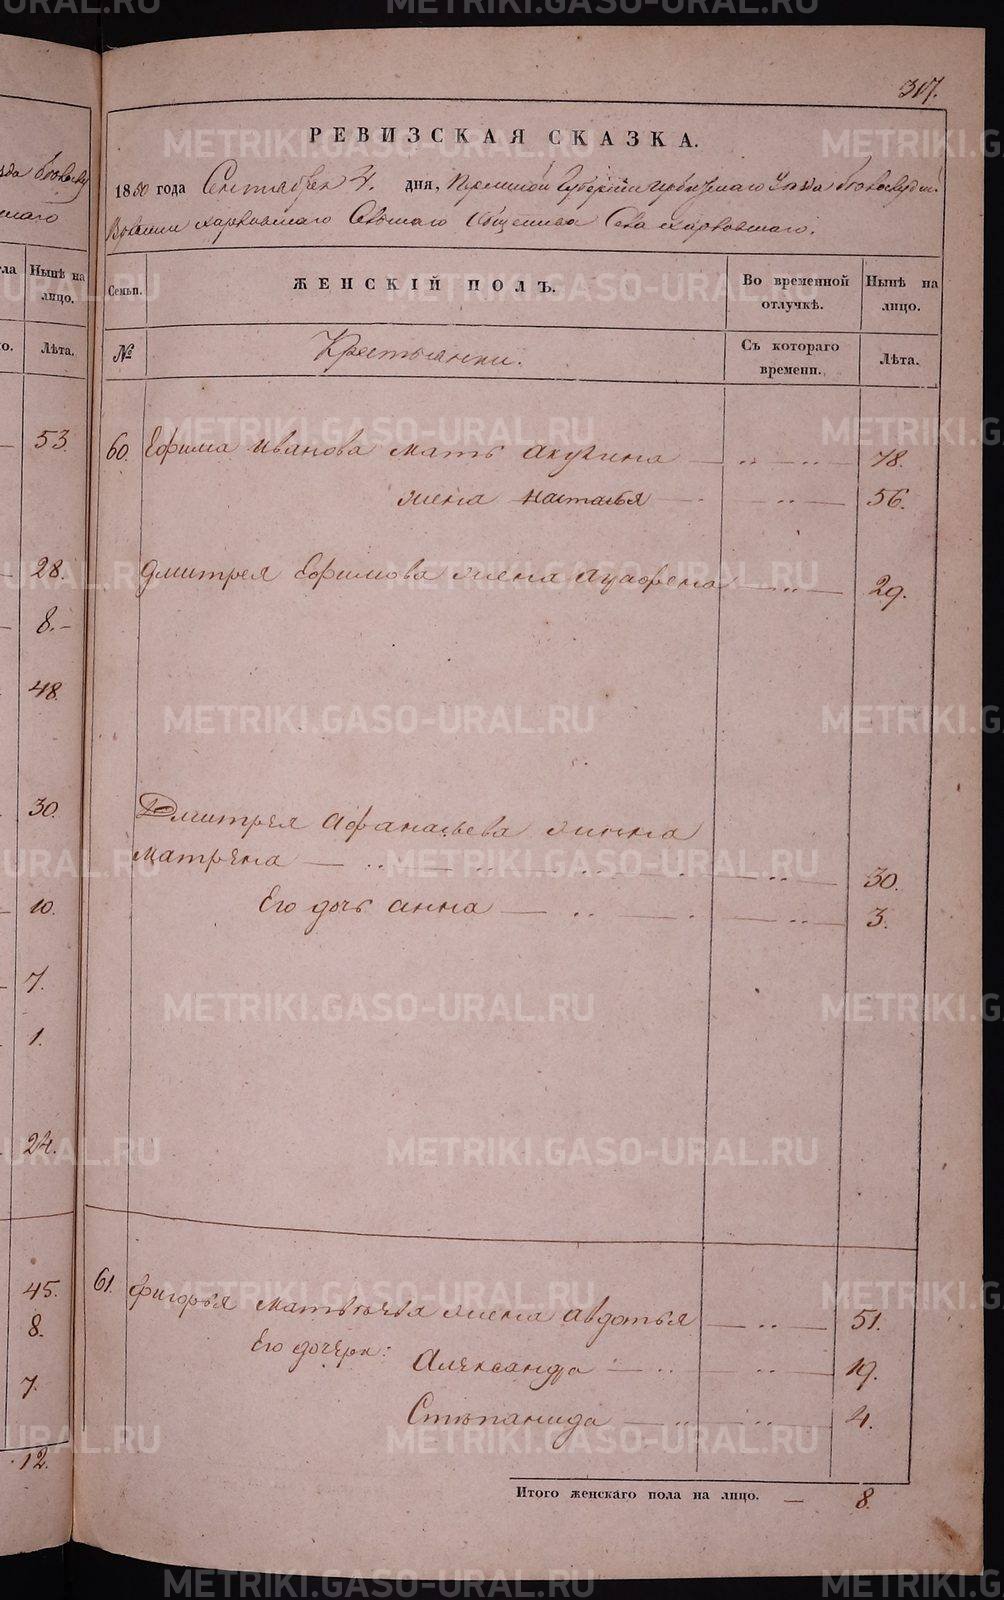 317.
РЕВИЗСКАЯ СКАЗКА.
1850 года Сентября 4. дня, Пермской Губернии Ирбитского Уезда
Волости Харловского Сельского Общества Села Харловского.
Семьи.
ЖЕНСКІЙ ПОЛЪ.
Во временной отлучкѣ.
Нынѣ на лицо.
№
Крестьянки.
Съ котораго времени.
Лѣта.
60. Ефима Иванова мать Акулина — „ — „ — 78.
жена Наталья — „ — 56.
Дмитрея Ефимова жена — „ — 29.
Дмитрея Афанасьева жена
Матрена — „ — „ — 30.
Его дочь Анна — „ — „ — 3.
61. Григорья Матвѣева жена Авдотья — „ — 51.
Его дочери: Александра — „ — „ — 19.
Степанида — „ — „ — 4.
Итого женскаго пола на лицо. — 8.
Нынѣ на лицо.
Лѣта.
53.
28.
8.
48.
30.
10.
7.
1.
24.
45.
8.
7.
12.
METRIKI.GASO-URAL.RU